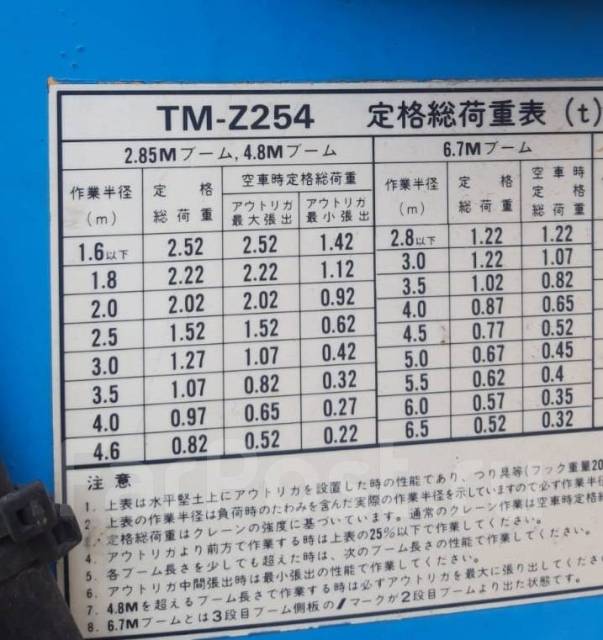 TM-Z254 定格総荷重表 (t)
2.85Mブーム, 4.8Mブーム 6.7Mブーム
作業半径 (m) 定格総荷重 空車時定格総荷重 作業半径 (m) 定格総荷重 空車時定格総荷重
アウトリガ最大張出 アウトリガ最小張出
1.6以下 2.52 2.52 1.42 2.8以下 1.22 1.22
1.8 2.22 2.22 1.12 3.0 1.22 1.07
2.0 2.02 2.02 0.92 3.5 1.02 0.82
2.5 1.52 1.52 0.62 4.0 0.87 0.65
3.0 1.27 1.07 0.42 4.5 0.77 0.52
3.5 1.07 0.82 0.32 5.0 0.67 0.45
4.0 0.97 0.65 0.27 5.5 0.62 0.4
4.6 0.82 0.52 0.22 6.0 0.57 0.35
6.5 0.52 0.32
注意
1. 上表は水平堅土上にアウトリガを設置した時の性能であり、つり具等(フック重量20
2. 上表の作業半径は負荷時のたわみを含んだ実際の作業半径を示していますので必ず作業半径
3. 定格総荷重はクレーンの強度に基づいています。通常のクレーン作業は空車時定格総
4. アウトリガより前方で作業する時は上表の25%以下で作業してください。
5. 各ブーム長さを少しでも超えた時は、次のブーム長さの性能で作業してください。
6. アウトリガ中間張出時は最小張出の性能で作業してください。
7. 4.8Mを超えるブーム長さで作業する時は必ずアウトリガを最大に張り出してくださ
8. 6.7Mブームとは3段目ブーム側板の/マークが2段目ブームより出た状態です。